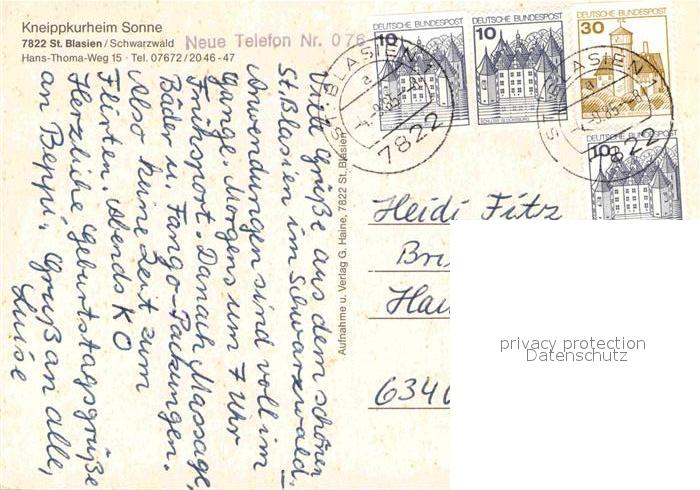 Kneippkurheim Sonne
7822 St. Blasien/Schwarzwald
Hans-Thoma-Weg 15 · Tel. 07672/2046-47
Neue Telefon Nr. 076
Viele Grüße aus dem schönen
St. Blasien im Schwarzwald.
Anwendungen sind voll im
Gange. Morgens um 7 Uhr
Frühsport. Danach Massage,
Bäder u. Fango-Packungen.
Also keine Zeit zum
Flirten. Abends KO
Herzliche Geburtstagsgrüße
an Beppi, Gruß an alle,
Luise
Aufnahme u. Verlag G. Haine, 7822 St. Blasien
DEUTSCHE BUNDESPOST
10
DEUTSCHE BUNDESPOST
10
SCHLOSS GLÜCKSBURG
DEUTSCHE BUNDESPOST
30
DEUTSCHE BUNDESPOST
10
ST. BLASIEN 1
a
7822
ST. BLASIEN 1
a
7822
Heidi Fitz
Bri
Hau
6340
privacy protection
Datenschutz